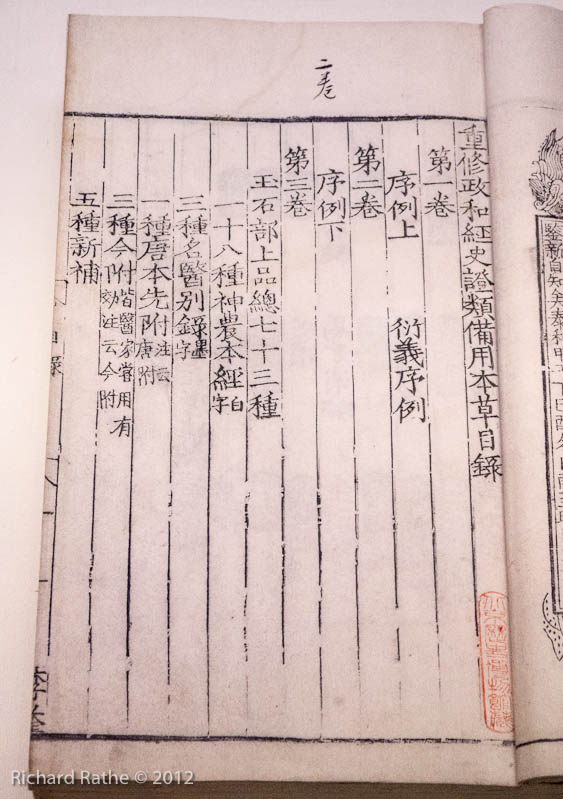 二卷
重修政和經史證類備用本草目錄
第一卷
序例上 衍義序例
第二卷
序例下
第三卷
玉石部上品總七十三種
一十八種神農本經白字
三種名醫別錄墨字
一種唐本先附注云唐附
三種今附皆醫家嘗用有効注云今附
五種新補
目錄
Richard Rathe © 2012